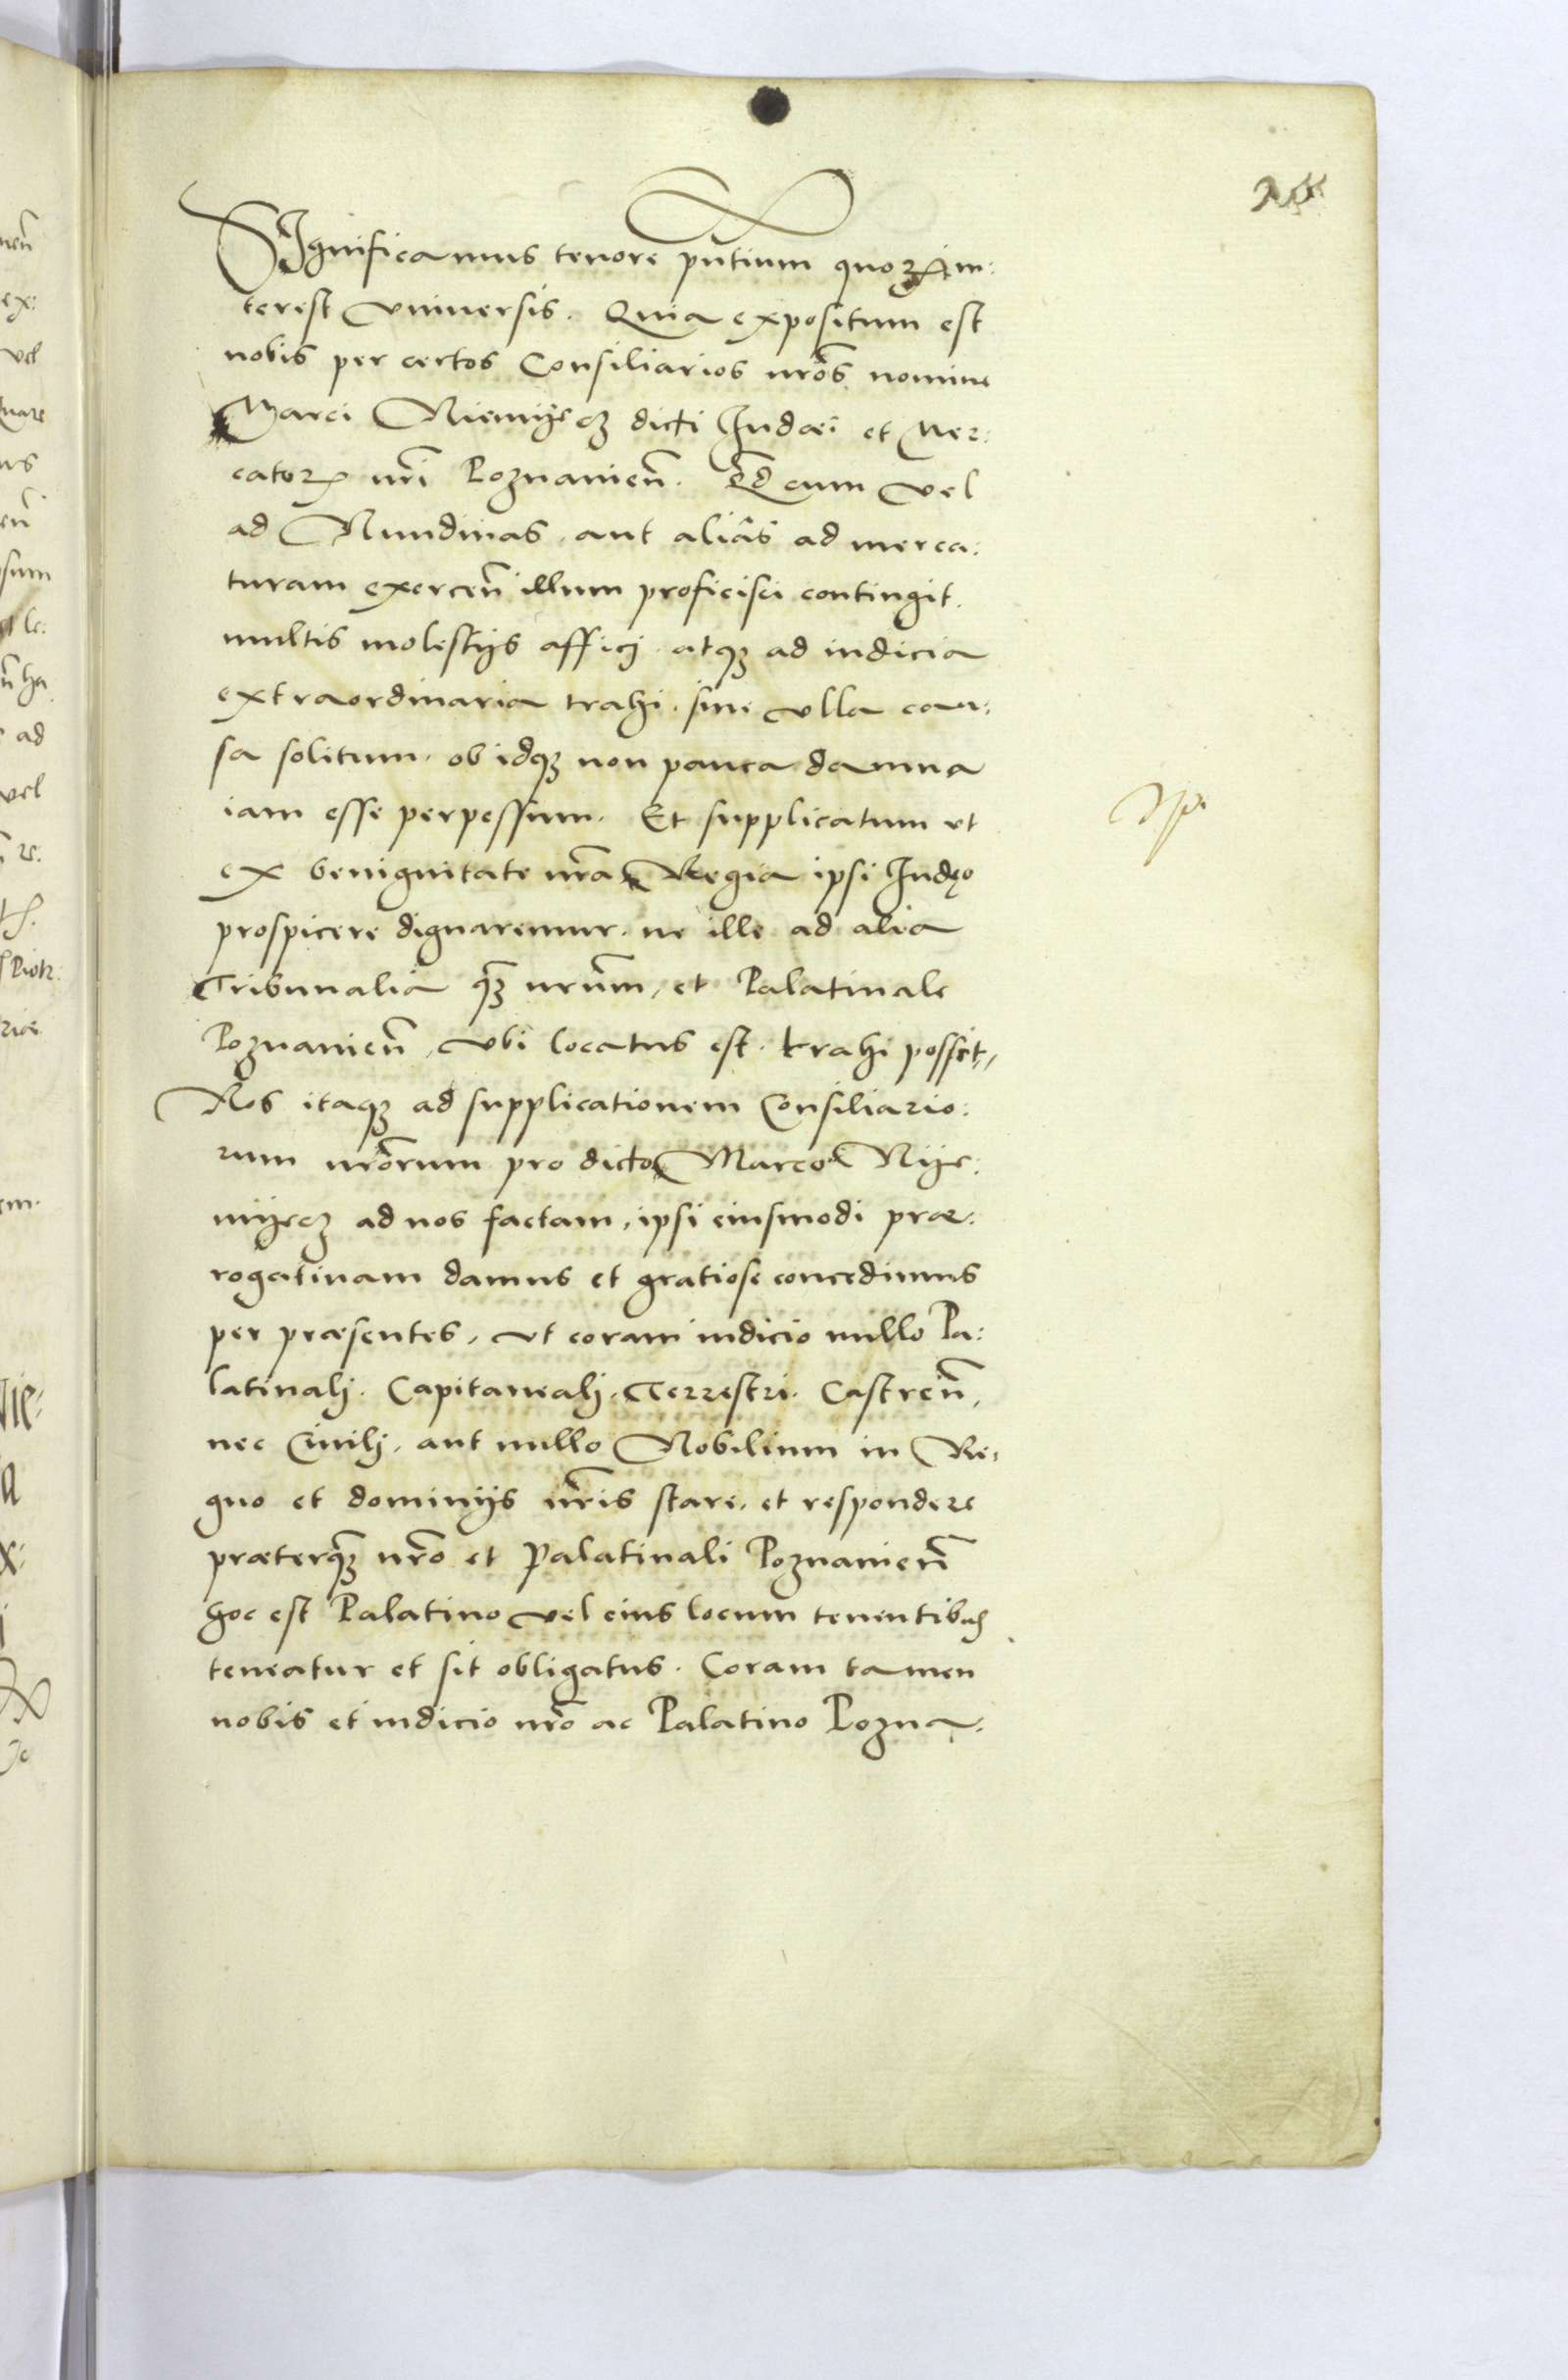 SIgnificamus tenore pñtium quoꝝ in:
terest vniuersis. Quia expositum est
nobis per certos Consiliarios nrõs nomine
Marci Niemijecz dicti Iudæi et Mer:
catoris nrĩ Poznanieñ. Qd cum vel
ad Nundinas aut aliâs ad merca:
turam exerceñ illum proficisci contingit.
multis molestijs affici atqꝫ ad iudicia
extraordinaria trahi sine vlla cau:
sa solitum. ob idqꝫ non pauca damna
iam esse perpessum. Et supplicatum vt
ex benignitate nrã Regia ipsi Iudęo
prospicere dignaremur. ne ille ad alia
Tribunalia qꝫ nrũm, et Palatinale
Poznanieñ, vbi locatus est trahi possit,,
Nos itaqꝫ ad supplicationem Consiliario:
rum nrõrum pro dicto Marco Nije:
mijecz ad nos factam, ipsi eiusmodi præ:
rogatiuam damus et gratiose concedimus
per præsentes, vt coram iudicio nullo Pa:
latinalj. Capitanealj. Terrestri. Castreñ,
nec Ciuilj, aut nullo Nobilium in Re:
gno et dominijs nrĩs stare, et respondere
præterqꝫ nrõ et Palatinali Poznanieñ
hoc est Palatino vel eius locum tenentibus
teneatur et sit obligatus. Coram tamen
nobis et iudicio nrõ ac Palatino Pozna: